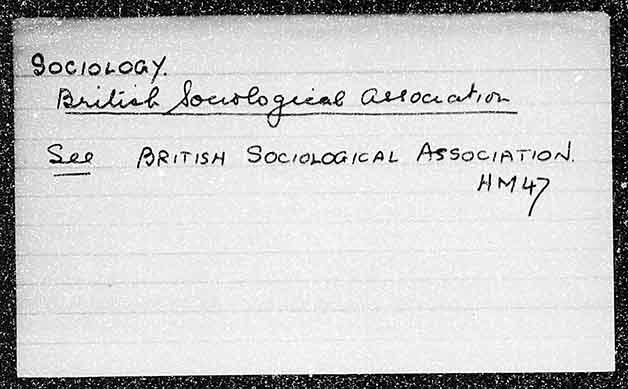 SOCIOLOGY.
British Sociological Association
See BRITISH SOCIOLOGICAL ASSOCIATION.
HM47